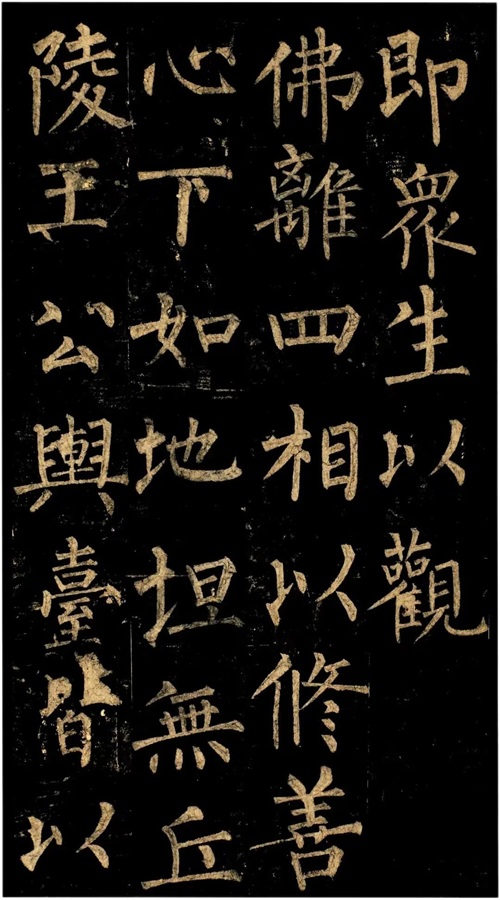 即眾生以觀
佛離四相以修善
心下如地坦無丘
陵王公輿臺皆以